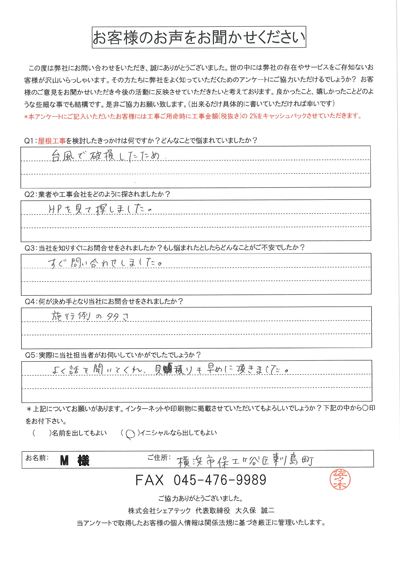 お客様のお声をお聞かせください
この度は弊社にお問い合わせをいただき、誠にありがとうございました。世の中には弊社の存在やサービスをご存知ないお
客様が沢山いらっしゃいます。その方たちに弊社をよく知っていただくためのアンケートにご協力いただけるでしょうか? お客
様のご意見をお聞かせいただき今後の活動に反映させていただきたいと考えております。良かったこと、嬉しかったことどのよ
うな些細な事でも結構です。是非ご協力お願い致します。(出来るだけ具体的に書いていただければ幸いです)
*本アンケートにご記入いただいたお客様には工事ご用命時に工事金額(税抜き)の2%をキャッシュバックさせていただきます。
Q1:屋根工事を検討したきっかけは何ですか?どんなことで悩まれていましたか?
台風で破損したため
Q2:業者や工事会社をどのように探されましたか?
HPを見て探しました。
Q3:当社を知りすぐにお問合せをされましたか?もし悩まれたとしたらどんなことがご不安でしたか?
すぐ問い合わせしました。
Q4:何が決め手となり当社にお問合せをされましたか?
施行例の多さ
Q5:実際に当社担当者がお伺いしていかがでしたでしょうか?
よく話を聞いてくれ、見積りも早めに頂きました。
*上記についてお願いがあります。インターネットや印刷物に掲載させていただいてもよろしいでしょうか?下記の中から〇印
をお付下さい。
( )名前を出してもよい (〇)イニシャルなら出してもよい
お名前: M 様 ご住所: 横浜市保土ヶ谷区釜台町
FAX 045-476-9989
ご協力ありがとうございました。
株式会社シェアテック 代表取締役 大久保 誠二
当アンケートで取得したお客様の個人情報は関係法規に基づき厳正に管理いたします。